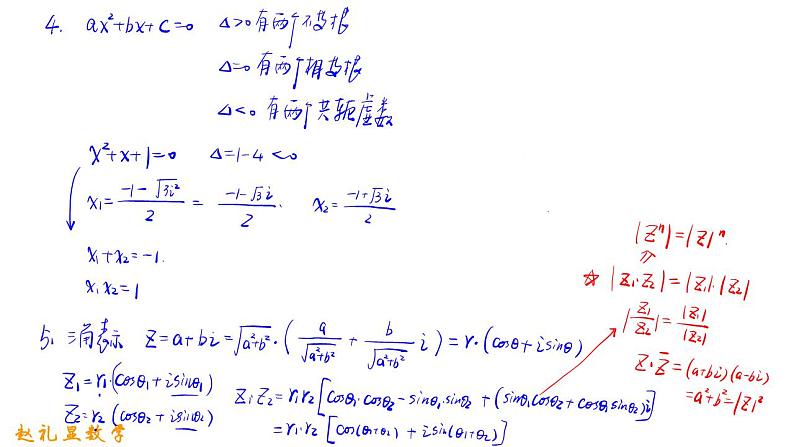 4. ax²+bx+c=0 Δ>0 有两个不等根
Δ=0 有两个相等根
Δ<0 有两个共轭虚数
x²+x+1=0 Δ=1-4<0
x₁=(-1-√(3i²))/2 = (-1-√3i)/2. x₂=(-1+√3i)/2
x₁+x₂=-1.
x₁x₂=1
|Zⁿ|=|Z|ⁿ.
⇑
☆ |Z₁·Z₂|=|Z₁|·|Z₂|
|Z₁/Z₂|=|Z₁|/|Z₂|
Z·Z̄=(a+bi)(a-bi)
=a²+b²=|Z|²
5. 三角表示 Z=a+bi=√(a²+b²)·(a/√(a²+b²) + b/√(a²+b²) i)=r·(cosθ+isinθ)
Z₁=r₁·(cosθ₁+isinθ₁)
Z₂=r₂(cosθ₂+isinθ₂)
Z₁Z₂=r₁r₂[cosθ₁·cosθ₂-sinθ₁·sinθ₂+(sinθ₁cosθ₂+cosθ₁sinθ₂)i]
=r₁·r₂[cos(θ₁+θ₂)+isin(θ₁+θ₂)]
赵礼显数学